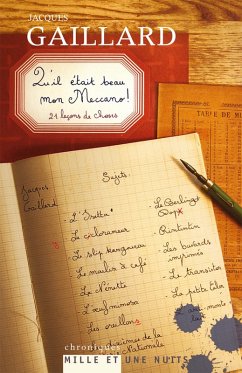 JACQUES
GAILLARD
Qu'il était beau
mon Meccano!
21 leçons de choses
TABLE DE M
Jacques
Gaillard
Sujets.
- L'Isetta
- Le cyclorameur
- Le slip kangourou
- Le moulin à café
- La Ninette
- L'œuf mimosa
- Les oreillons
- Le Berlingot
Dop
- Rintintin
- Les buvards
imprimés
- Le transistor
- La petite laine
chroniques
MILLE ET UNE NUITS